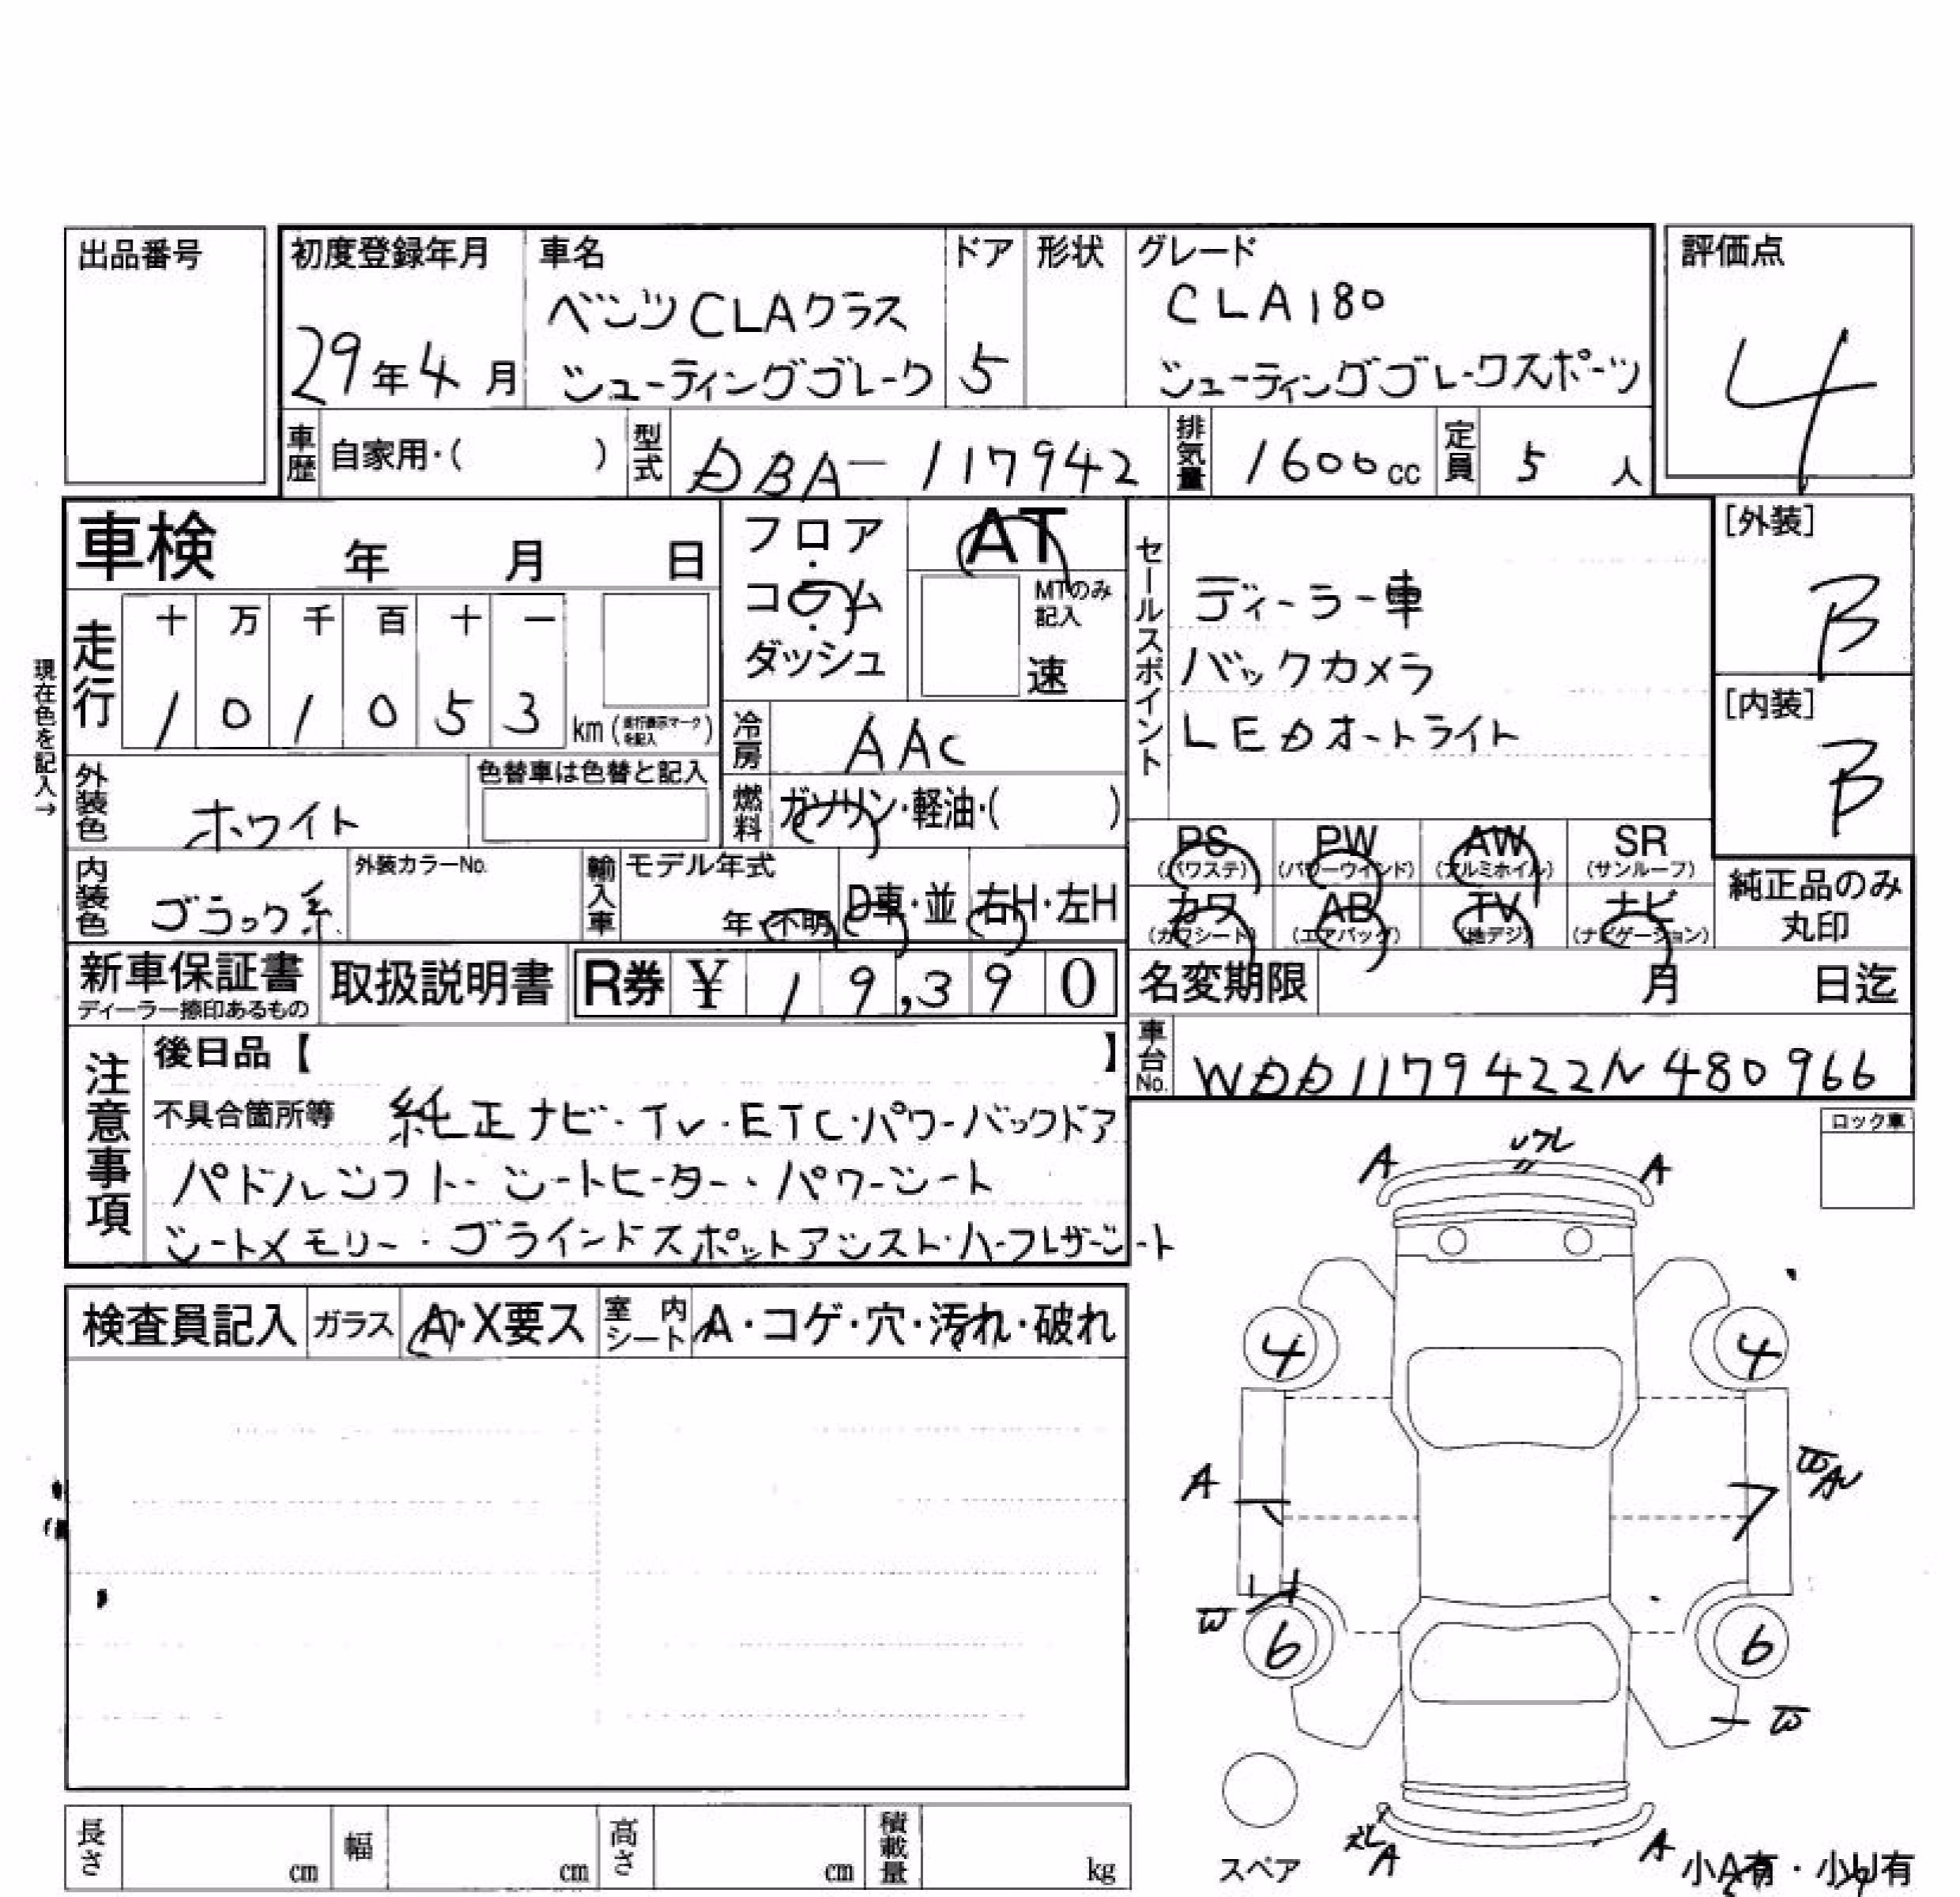 出品番号
初度登録年月 車名 ドア 形状 グレード 評価点
ベンツCLAクラス CLA180
29年4月 シューティングブレーク 5 シューティングブレークスポーツ 4
車歴 自家用・( ) 型式 DBA-117942 排気量 1600cc 定員 5人
車検 年 月 日
フロア・コラム・ダッシュ
AT
MTのみ記入
速
セールスポイント
ディーラー車
バックカメラ
LEDオートライト
[外装]
B
[内装]
B
現在色を記入→
走行 十 万 千 百 十 一
1 0 1 0 5 3 km (走行表示マークを記入)
冷房 AAC
外装色 ホワイト 色替車は色替と記入
燃料 ガソリン・軽油・( )
PS (パワステ) PW (パワーウインド) AW (アルミホイル) SR (サンルーフ)
カワ (カワシート) AB (エアバッグ) TV (地デジ) ナビ (ナビゲーション)
純正品のみ丸印
内装色 ブラック系 外装カラーNo. 輸入車 モデル年式 年・不明 D車・並 右H・左H
新車保証書 ディーラー捺印あるもの 取扱説明書 R券 ¥ 19,390
名変期限 月 日迄
車台No. WDD1179422N480966
注意事項
後日品【 】
不具合箇所等 純正ナビ・TV・ETC・パワーバックドア
パドルシフト・シートヒーター・パワーシート
シートメモリー・ブラインドスポットアシスト・ハーフレザーシート
ロック車
検査員記入 ガラス A・X要ス 室内シート A・コゲ・穴・汚れ・破れ
A A
4 4
A
W
6 6
W
A A
スペア
小A有・小U有
長さ cm 幅 cm 高さ cm 積載量 kg